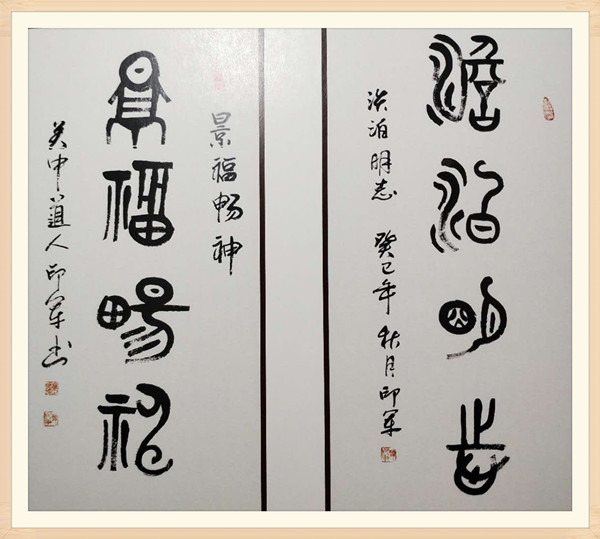 澹泊明志
淡泊明志 癸巳年 秋月 印军
景福畅神
景福暢神
关中道人印军书